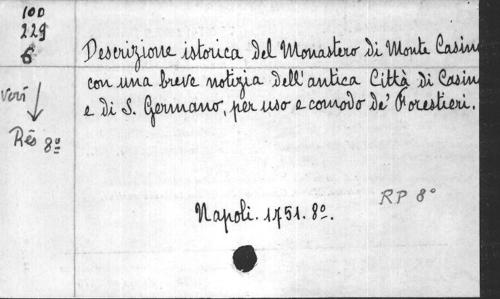 100
229
6
Descrizione istorica del Monastero di Monte Casino
con una breve notizia dell'antica Città di Casin
e di S. Germano, per uso e comodo de' Forestieri.
Rés 8º
RP 8º
Napoli. 1751. 8º.